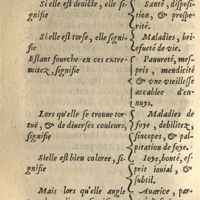 Si elle est droicte, elle si-
gnifie
Santé, disposi-
tion, & prospe-
rité.
Si elle est torse, elle signi-
fie
Maladies, bri-
efueté de vie.
Estant fourche en ces extre-
mitez, signifie
Pauureté, mes-
pris, mendicité
& vne vieillesse
accablee d'en-
nuys.
Lors qu'elle se trouue tor-
tuë, & de diuerses couleurs,
signifie
Maladies de
foye, debilitez,
sincopes, & pal-
pitation de foye.
Si elle est bien coloree, si-
gnifie
Ioye, bonté, es-
prit iouial, &
subtil.
Mais lors qu'elle angle
Auarice, par-